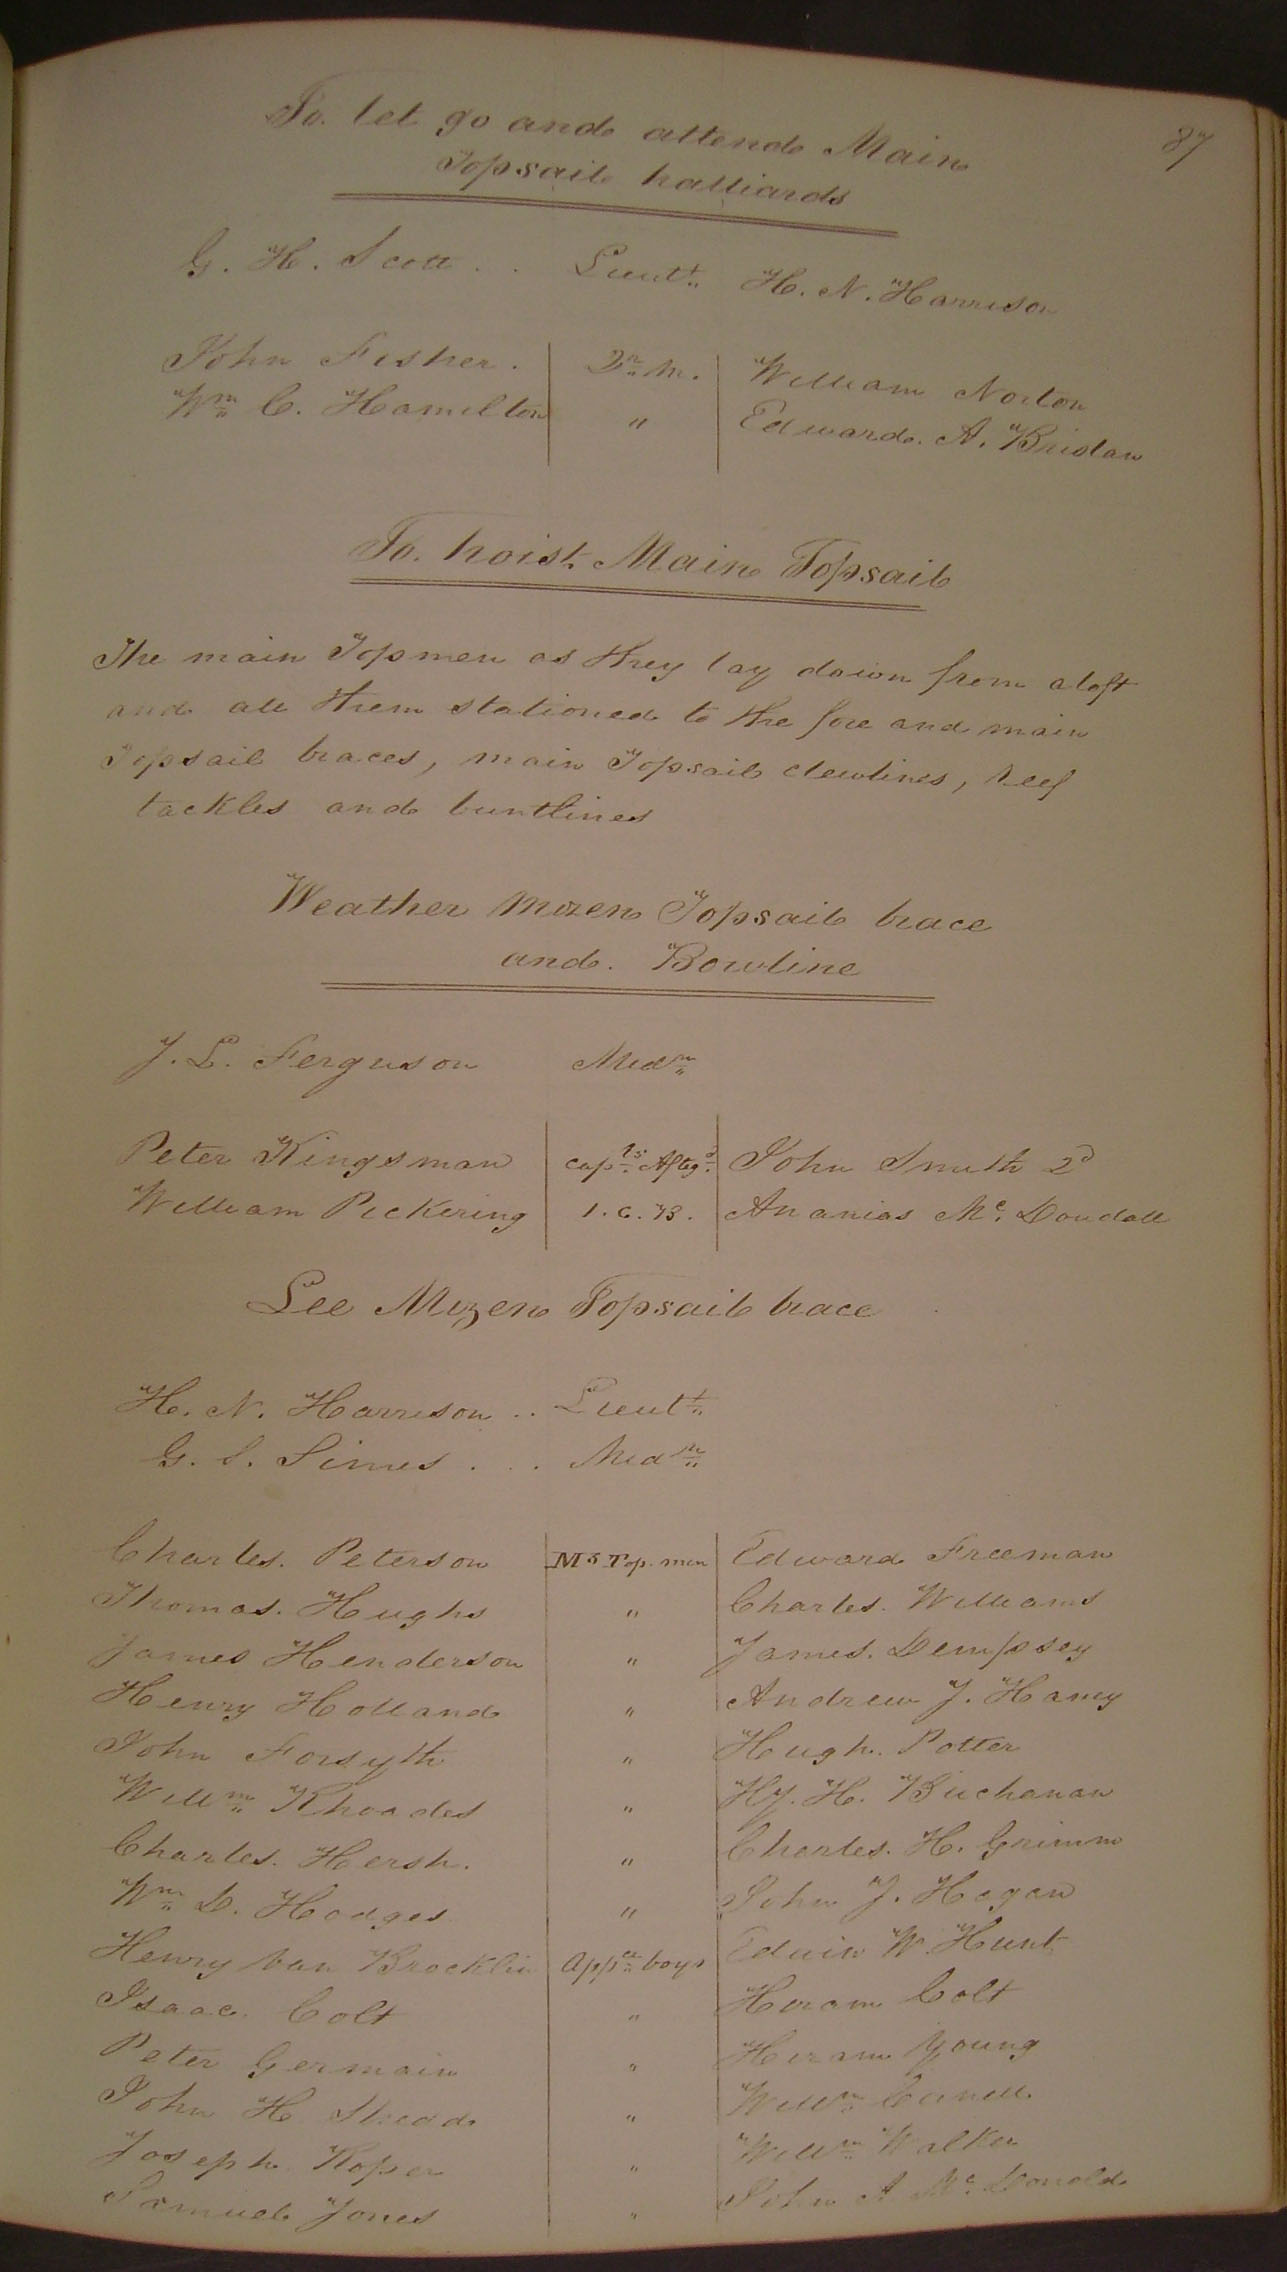 87
To let go and attend Main
Topsail halliards
G. H. Scott . . Lieutt. H. N. Harrison
John Fisher. Qr. M. William Norton
Wm. C. Hamilton " Edward. A. Bridan
To. hoist. Main Topsail
The main Topmen as they lay down from aloft
and all them stationed to the fore and main
Topsail braces, main Topsail clewlines, reef
tackles and buntlines
Weather mizen Topsail brace
and. Bowline
J. L. Ferguson Midm.
Peter Kingsman capts. Aftgd. John Smith 2d
William Pickering 1. C. B. Ananias Mc. Doudall
Lee Mizen Topsail brace
H. N. Harrison .. Lieutt.
G. S. Simes . . Midm.
Charles. Peterson Mz Top. men Edward Freeman
Thomas. Hughs " Charles. Williams
James Henderson " James. Dempsey
Henry Holland " Andrew J. Haney
John Forsyth " Hugh. Potter
Willm. Rhoades " Hy. H. Buchanan
Charles. Hersh. " Charles. H. Grimm
Wm. D. Hodges " John J. Hogan
Henry Van Brocklin Appce. boys Edwin W. Hunt
Isaac. Colt " Hiram Colt
Peter Germain " Hiram Young
John H. Shead " Willm.
Joseph Roper " Willm. Walker
Samuel Jones " John A Mc. Donald